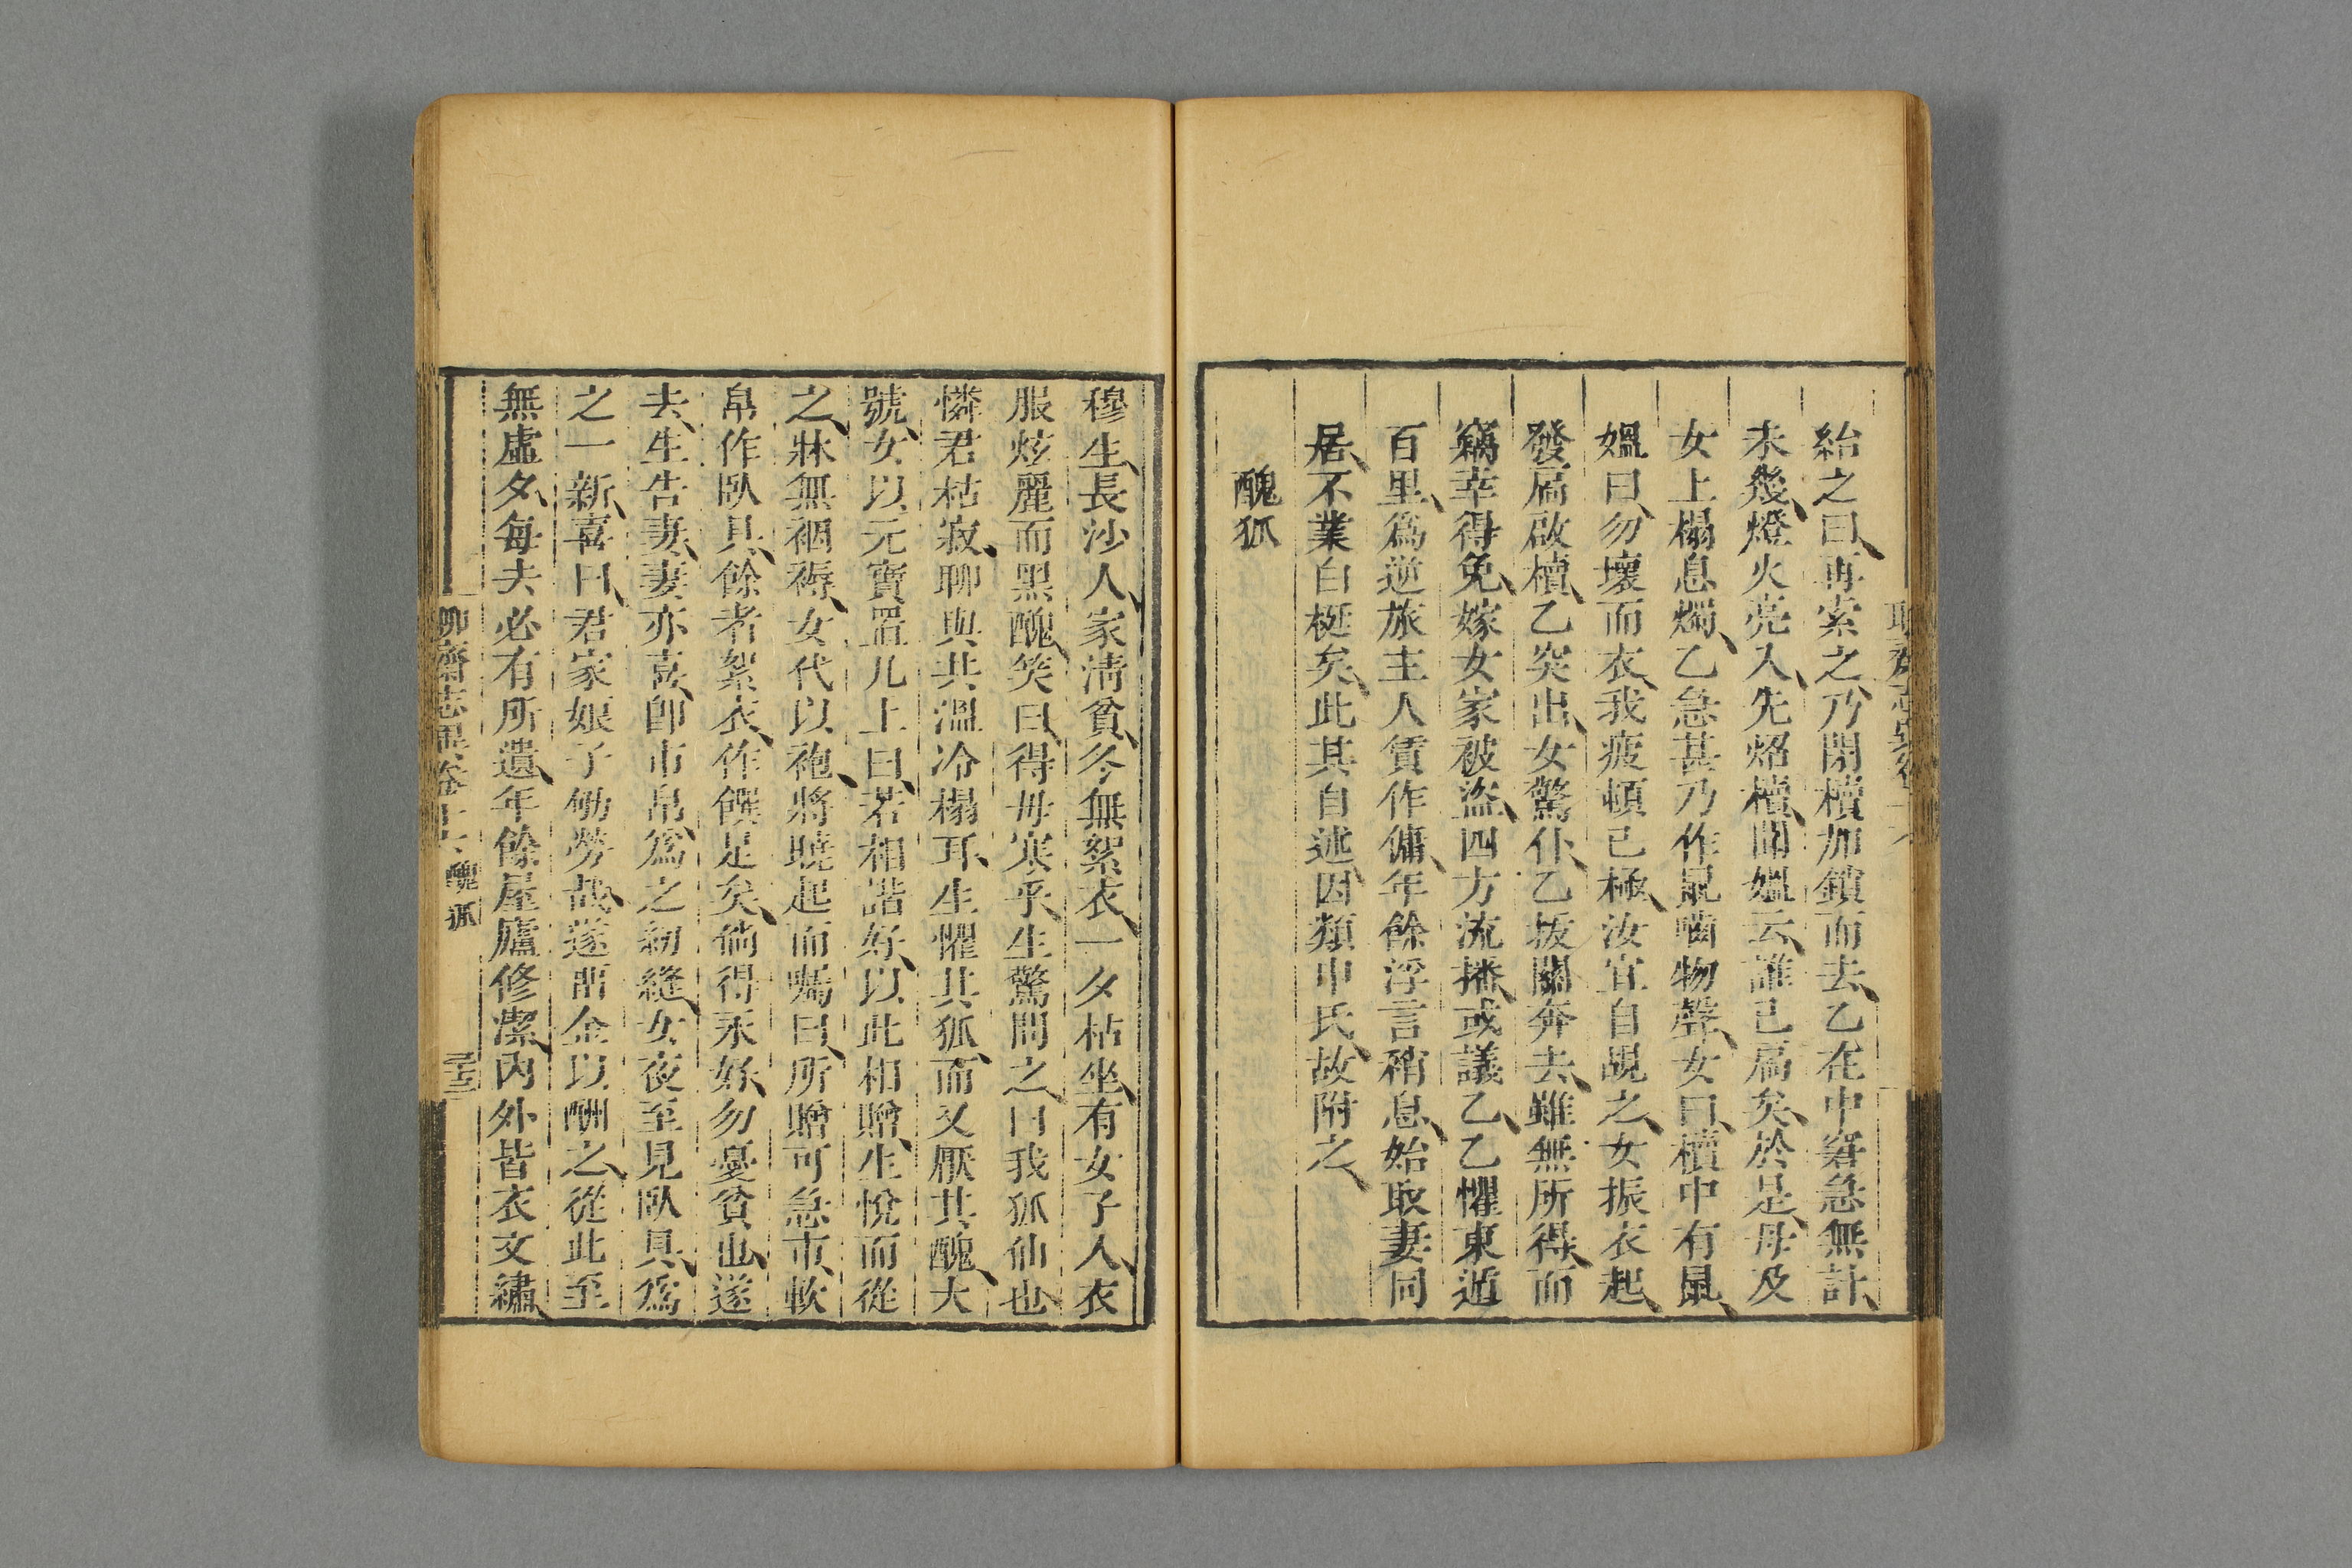 紿之曰再索之乃閉櫝加鎖而去乙在中窘急無計
未幾燈火亮入先炤櫝聞媼云誰已扃矣於是母及
女上榻息燭乙急甚乃作鼠嚙物聲女曰櫝中有鼠
媼曰勿壞而衣我疲頓已極汝宜自覘之女振衣起
發扃啟櫝乙突出女驚仆乙拔關奔去雖無所得而
竊幸得免嫁女家被盜四方流播或議乙乙懼東遁
百里爲逆旅主人賃作傭年餘浮言稍息始取妻同
居不業白梃矣此其自述因類申氏故附之
醜狐
穆生長沙人家淸貧冬無絮衣一夕枯坐有女子入衣
服炫麗而黑醜笑曰得毋寒乎生驚問之曰我狐仙也
憐君枯寂聊與共溫冷榻耳生懼其狐而又厭其醜大
號女以元寶置几上曰若相諧好以此相贈生悅而從
之牀無裀褥女代以袍將曉起而囑曰所贈可急市軟
帛作臥具餘者絮衣作饌足矣倘得永好勿憂貧也遂
去生告妻妻亦喜卽市帛爲之紉縫女夜至見臥具爲
之一新喜曰君家娘子劬勞哉遂留金以酬之從此至
無虛夕每去必有所遺年餘屋廬修潔內外皆衣文繡
聊齋志異卷十六 醜狐 二十三